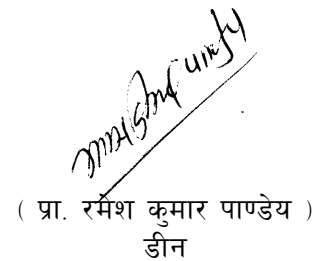 ( प्रा. रमेश कुमार पाण्डेय )
डीन